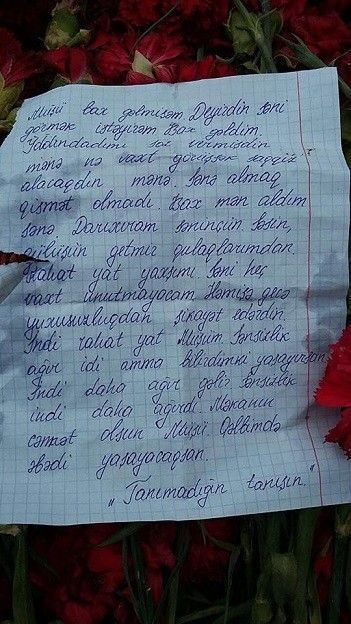 Muşü bax gəlmişəm. Deyirdin səni
görmək istəyirəm Bax gəldim.
Yadındadımı söz vermişdin
mənə nə vaxt görüşsək saqqız
alacaqdın mənə. Sənə almaq
qismət olmadı Bax mən aldım
sənə Darıxıram səninçün Səsin,
gülüşün getmir qulaqlarımdan
Rahat yat yaxşımı. Səni heç
vaxt unutmayacam Həmişə gecə
yuxusuzluqdan şikayət edərdin.
İndi rahat yat Muşum Sənsizlik
ağır idi amma bilirdimki yaşayırsan
İndi daha ağır gəlir Sənsizlik
indi daha ağırdı. Məkanın
cənnət olsun Muşü. Qəlbimdə
əbədi yaşayacaqsan.
„Tanımadığın tanışın."